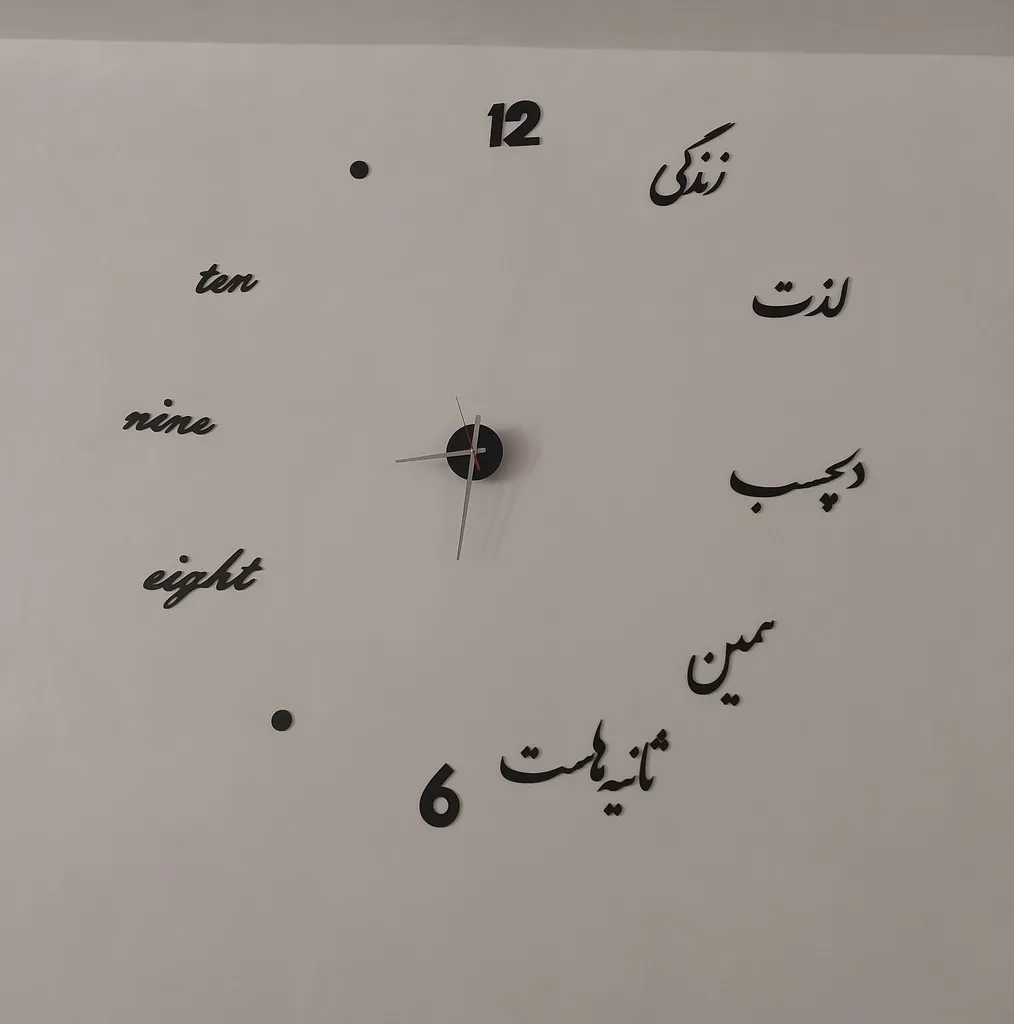 12
زندگی
لذت
دلچسب
همین
ثانیه هاست
6
eight
nine
ten